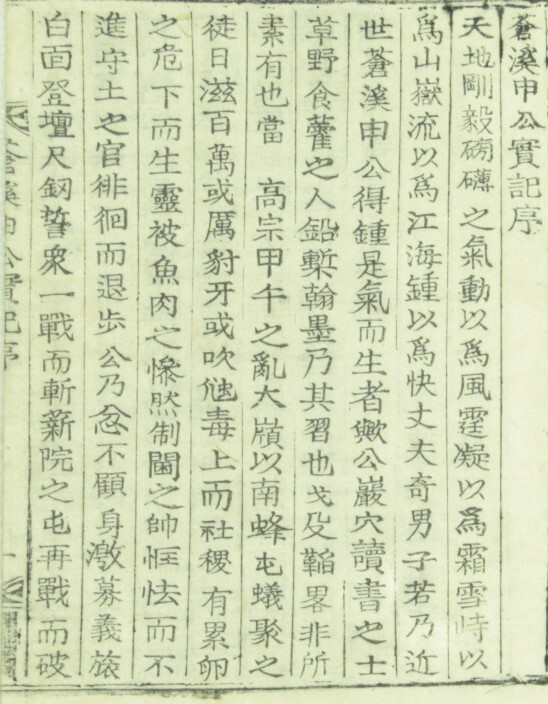 蒼溪申公實記序
天地剛毅磅礴之氣動以爲風霆凝以爲霜雪峙以
爲山嶽流以爲江海鍾以爲快丈夫奇男子若乃近
世蒼溪申公得鍾是氣而生者歟公巖穴讀書之士
草野食藿之人鉛槧翰墨乃其習也戈殳鞱畧非所
素有也當 高宗甲午之亂大嶺以南蜂屯蟻聚之
徒日滋百萬或厲豹牙或吹虺毒上而社稷有累卵
之危下而生靈被魚肉之慘然制閫之帥恇怯而不
進守土之官徘徊而退步公乃忿不顧身激募義旅
白面登壇尺釰誓衆一戰而斬薪院之屯再戰而破
蒼溪申公實記序 一